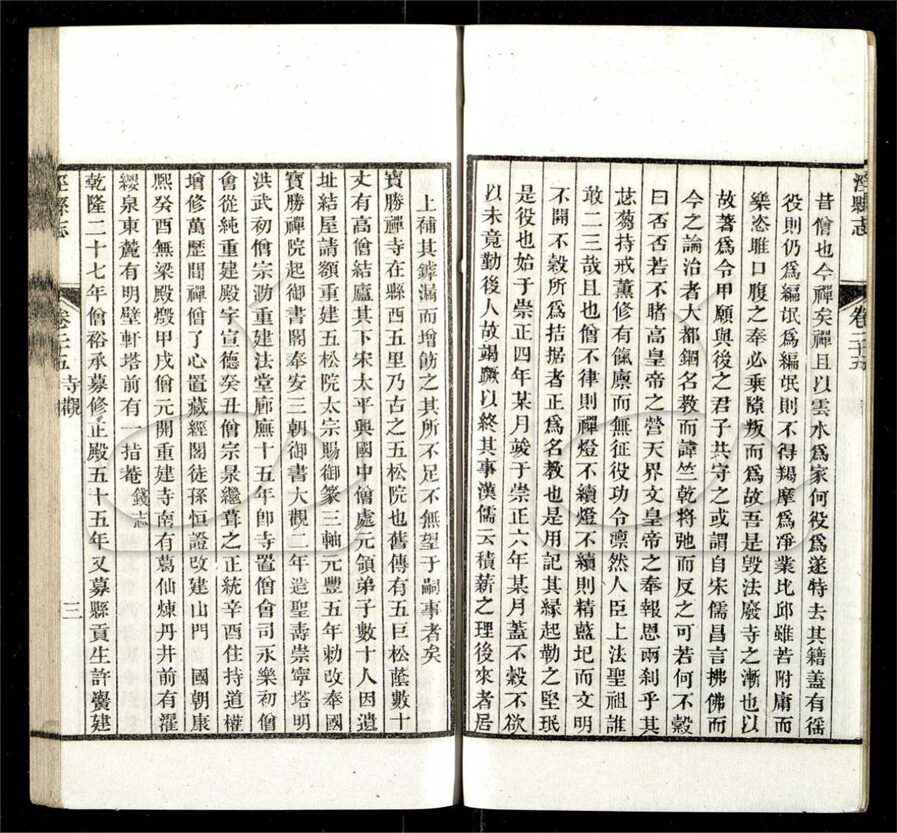 昔僧也今禪矣禪且以雲水爲家何役爲遂特去其籍蓋有徭
役則仍爲編氓爲編氓則不得羯摩爲凈業比邱雖苦附庸而
樂恣睢口腹之奉必乘隙叛而爲故吾是毀法廢寺之漸也以
故著爲令甲願與後之君子共守之或謂自宋儒昌言拂佛而
今之論治者大都錮名教而諱竺乾將弛而反之可若何不穀
曰否否若不睹高皇帝之營天界文皇帝之奉報恩兩刹乎其
苾蒭持戒薰修有餼廪而無征役功令凛然人臣上法聖祖誰
敢二三哉且也僧不律則禪燈不續燈不續則精藍圮而文明
不開不穀所爲拮据者正爲名教也是用記其緣起勒之堅珉
是役也始于崇正四年某月竣于崇正六年某月蓋不穀不欲
以未竟勤後人故竭蹶以終其事漢儒云積薪之理後來者居
上補其罅漏而增飭之其所不足不無望于嗣事者矣
寶勝禪寺在縣西五里乃古之五松院也舊傳有五巨松蔭數十
丈有高僧結廬其下宋太平興國中僧處元領弟子數十人因遺
址結屋請額重建五松院太宗賜御篆三軸元豐五年勅改奉國
寶勝禪院起御書閣奉安三朝御書大觀二年造聖壽崇寧塔明
洪武初僧宗泐重建法堂廊廡十五年卽寺置僧會司永樂初僧
會從純重建殿宇宣德癸丑僧宗泉繼葺之正統辛酉住持道權
增修萬歷間禪僧了心置藏經閣徒孫恒證改建山門　國朝康
熙癸酉無梁殿燬甲戌僧元開重建寺南有葛仙煉丹井前有濯
纓泉東麓有明壁軒塔前有一指菴 錢志
乾隆二十七年僧裕承募修正殿五十五年又募縣貢生許黌建
卷二十五 寺觀
三